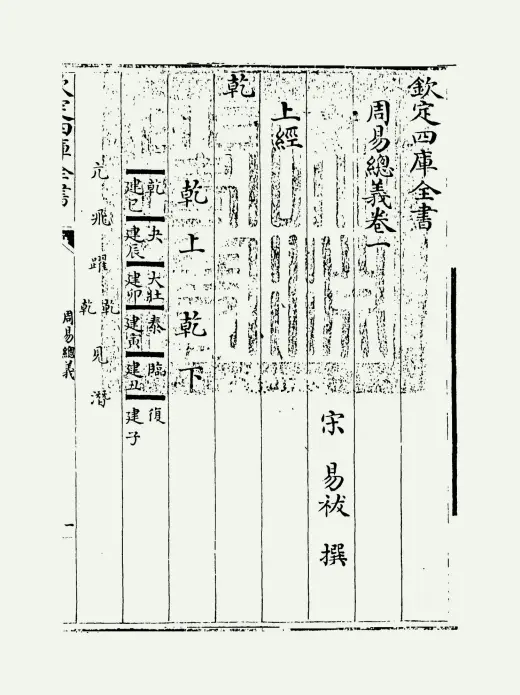 欽定四庫全書
周易總義卷一
宋 易祓 撰
上經
乾
乾上 乾下
乾 夬 大壯 泰 臨 復
建巳 建辰 建卯 建寅 建丑 建子
乾
亢 飛 躍 乾 見 潛
欽定四庫全書
周易總義
一